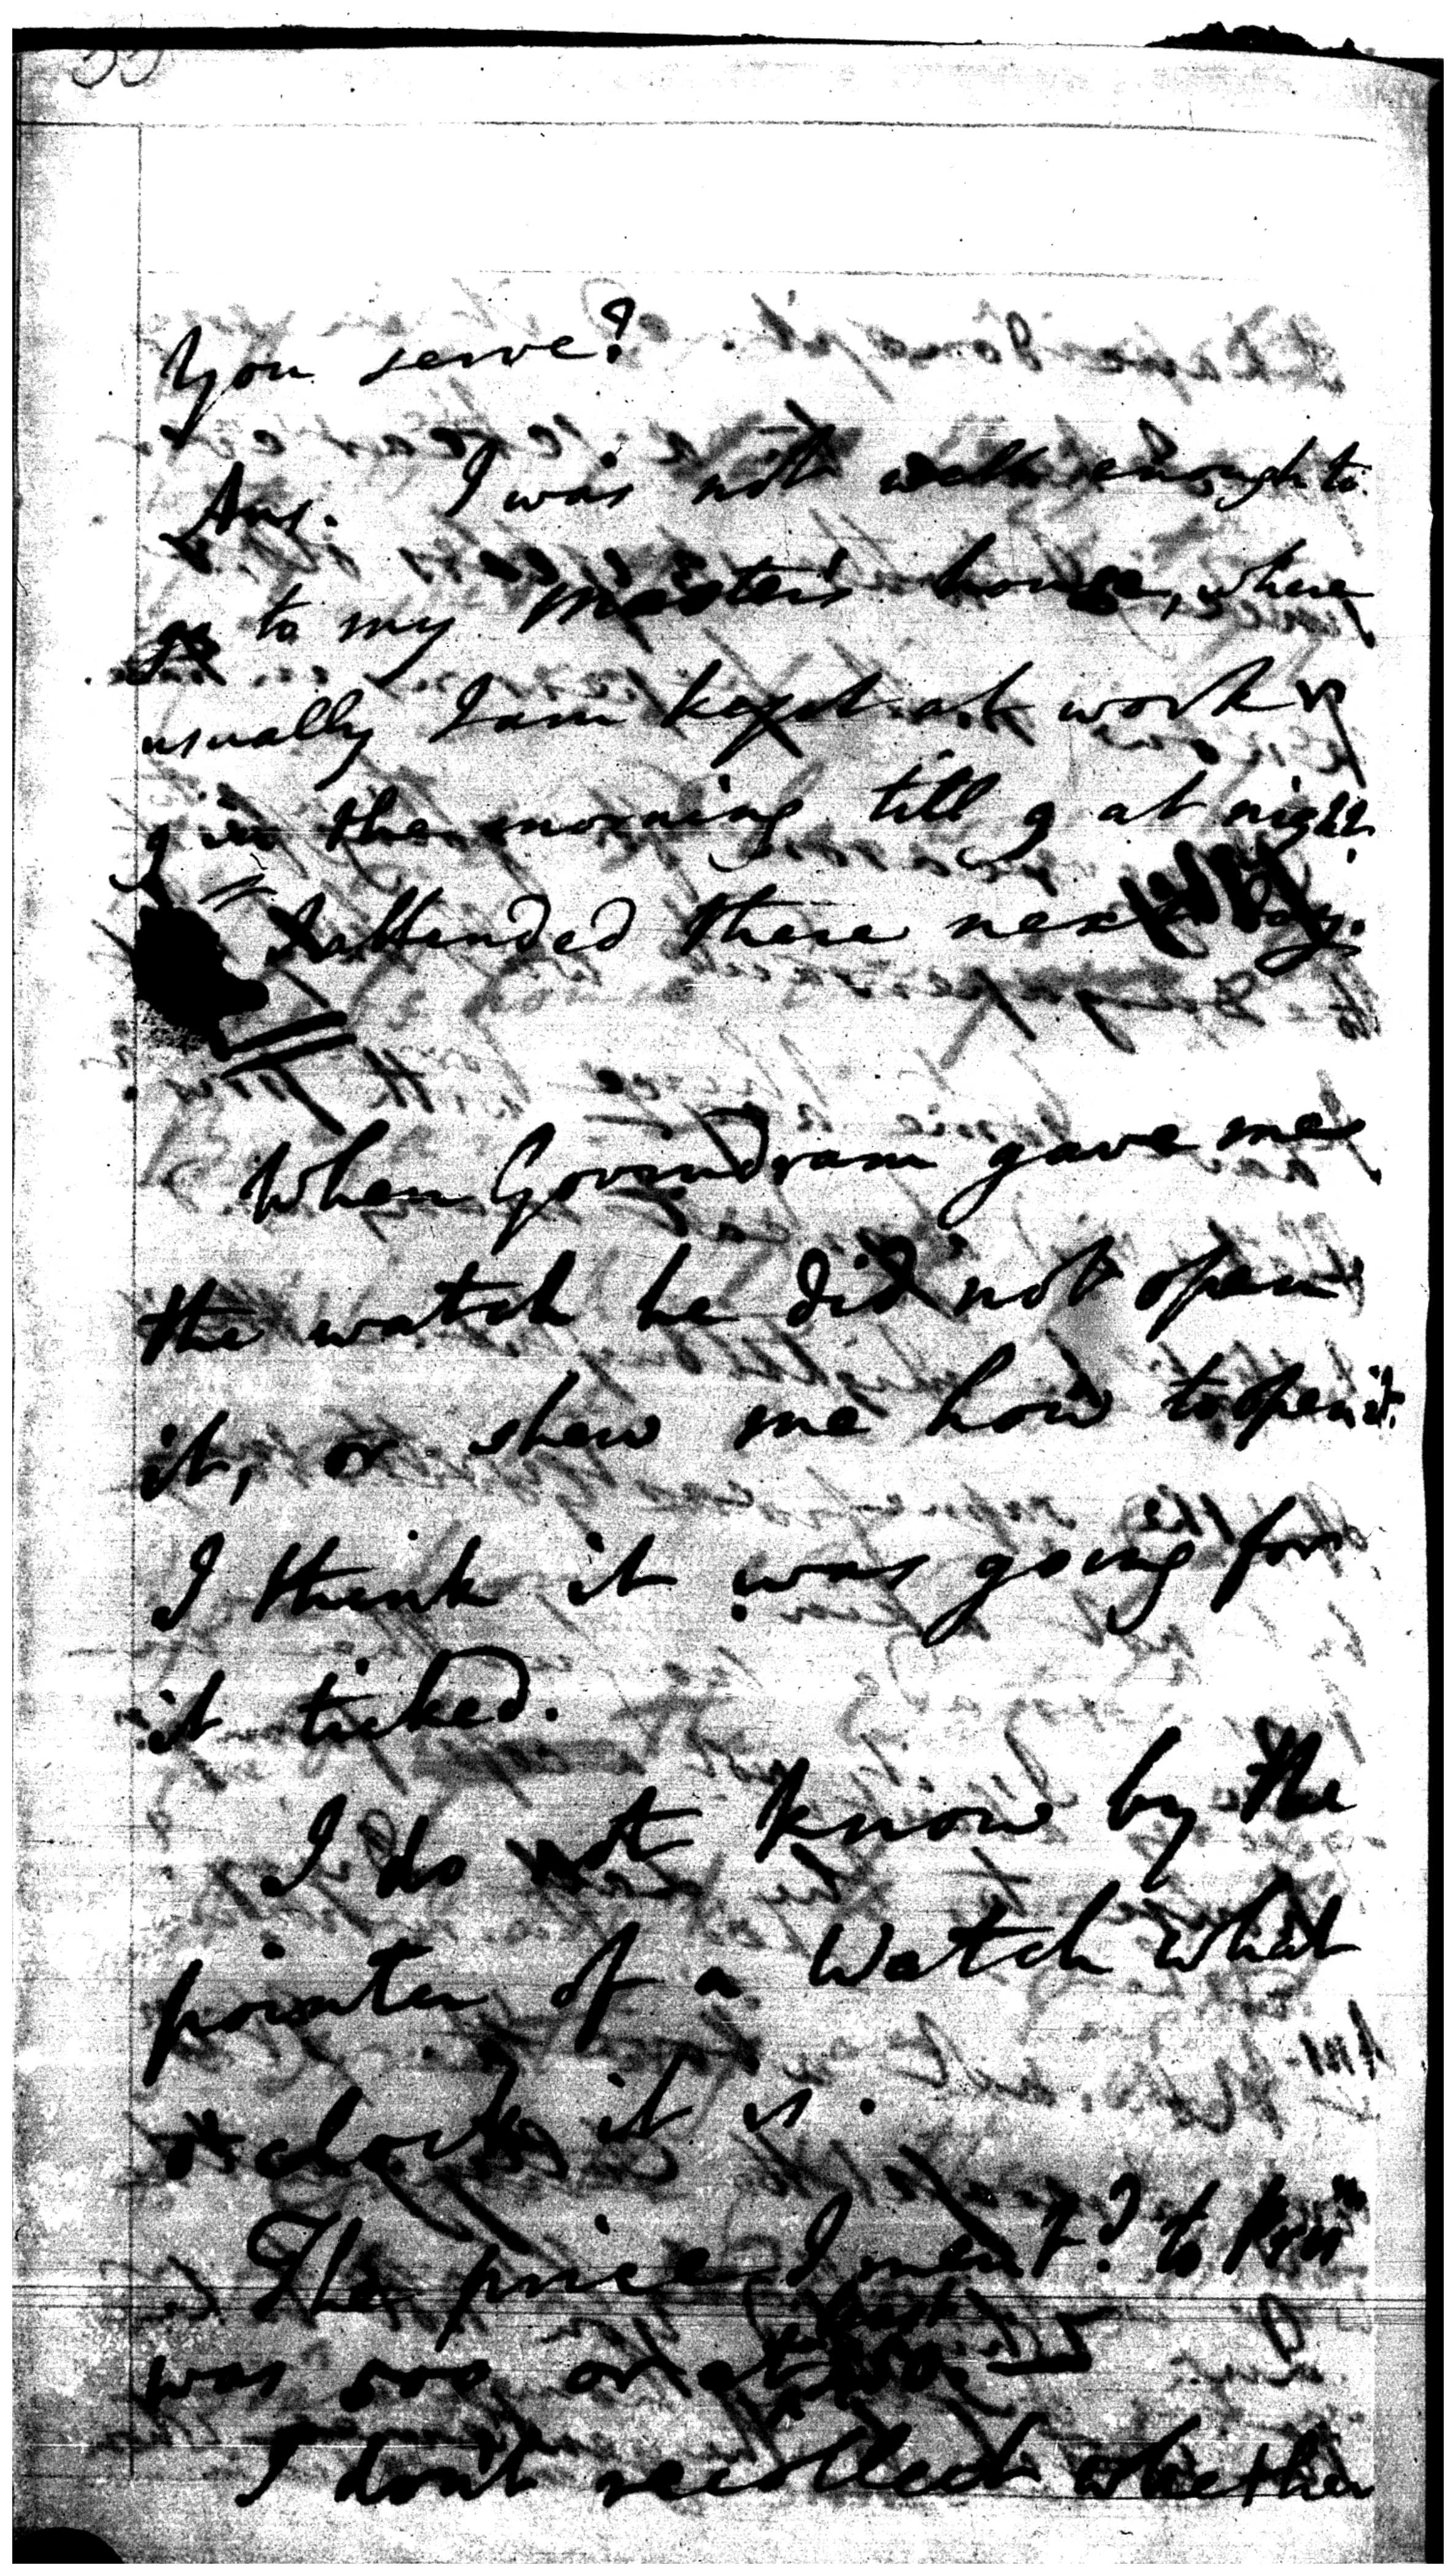 you serve?
Ans. I was not well enough to
go to my master's house, where
usually I am kept at work
9 in the morning till 9 at night.
I attended there next day.
When Govindram gave me
the watch he did not open
it, or shew me how to open it.
I think it was going for
it ticked.
I do not know by the
pointer of a Watch what
o'clock it is.
The price I ment? to
was 500 or at least
I don't recollect whether